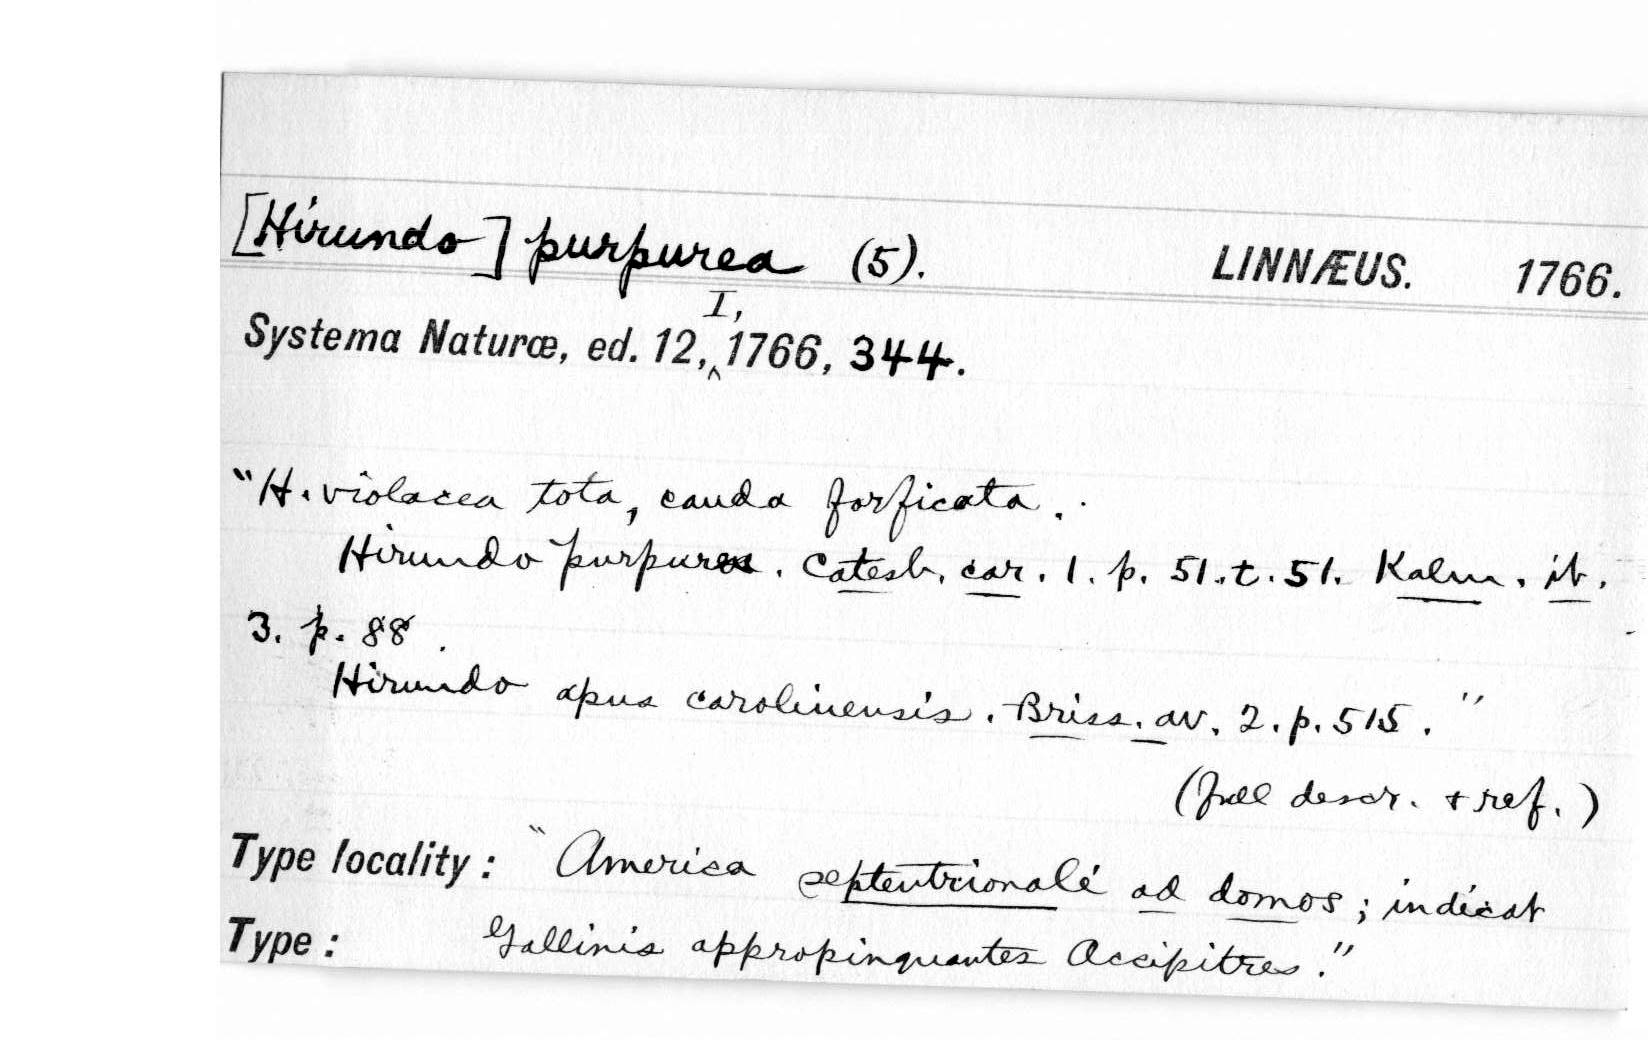 [Hirundo] purpurea (5). LINNÆUS. 1766.
Systema Naturæ, ed. 12, I, 1766, 344.
"H. violacea tota, cauda forficata.
Hirundo purpurea. Catesb. car. 1. p. 51. t. 51. Kalm. it.
3. p. 88.
Hirundo apus carolinensis. Briss. av. 2. p. 515."
(full descr. + ref.)
Type locality: "America septentrionali ad domos; indicat
Type: Gallinis appropinquantes Accipitres."